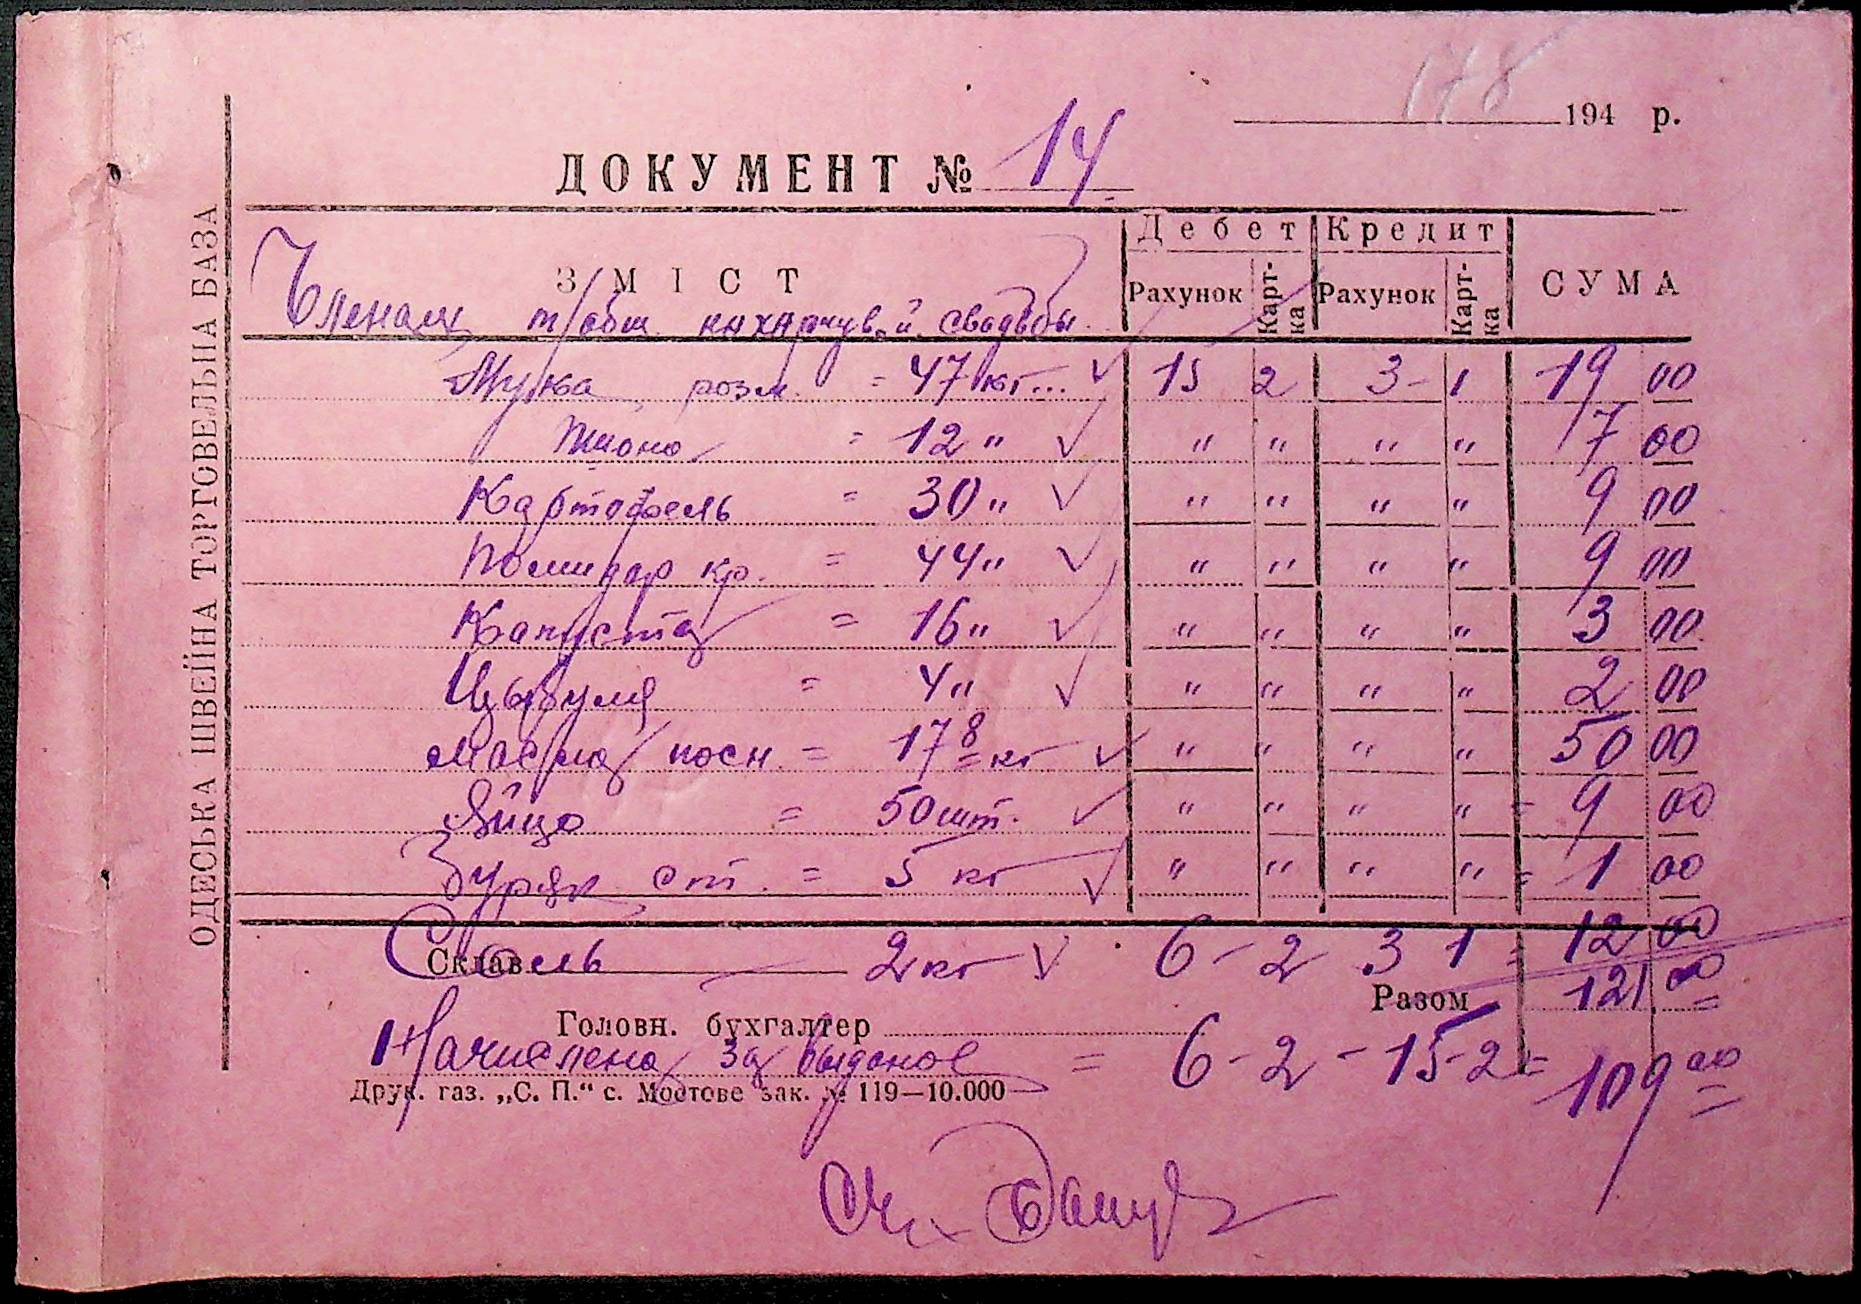 178
194 р.
ДОКУМЕНТ № 14
ОДЕСЬКА ШВЕЙНА ТОРГОВЕЛЬНА БАЗА
Дебет Кредит
ЗМІСТ Рахунок Карт-ка Рахунок Карт-ка СУМА
Членам т/общ. на харчув. й свадьбы
Мука розм. = 47 кг... ✓ 15 2 3 - 1 19 00
Пшоно = 12 " ✓ " " " " 7 00
Картофель = 30 " ✓ " " " " 9 00
Помидор кр. = 44 " ✓ " " " " 9 00
Капуста = 16 " ✓ " " " " 3 00
Цыбуля = 4 " ✓ " " " " 2 00
Масла посн. = 17 8 кг ✓ " " " " 50 00
Яйцо = 50 шт. ✓ " " " " = 9 00
Буряк ст. = 5 кг ✓ " " " " = 1 00
Склав Соель 2 кг ✓ 6 - 2 3 1 = 12 00
Разом 121 00
Головн. бухгалтер
Начислена за выданое = 6 - 2 - 15 - 2 = 109 00
Друк. газ. „С. П.“ с. Мостове зак. № 119—10.000